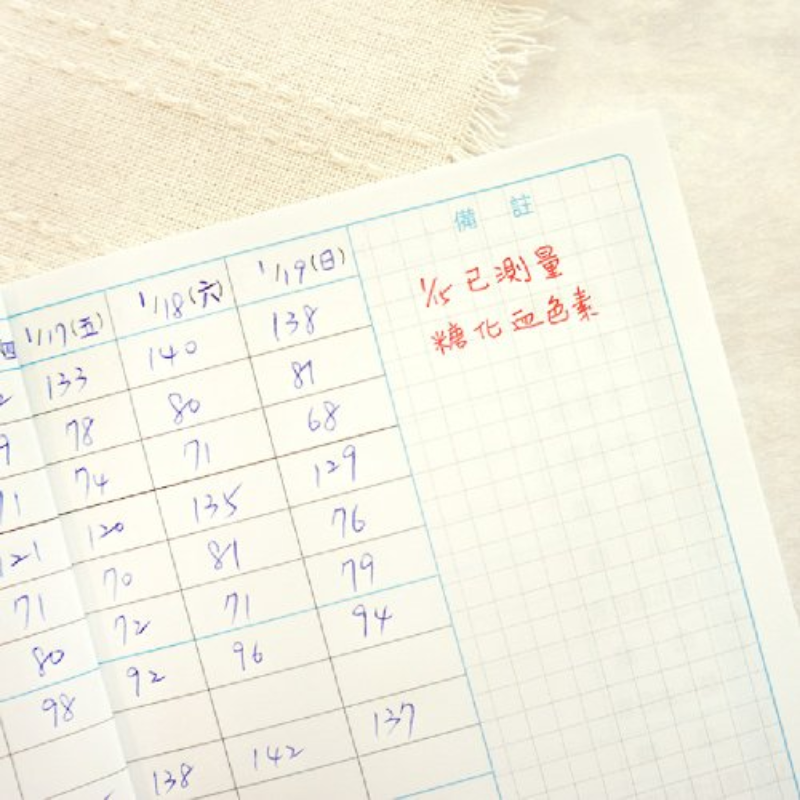 備 註
1/17(五) 1/18(六) 1/19(日)
1/15 已測量
糖化血色素
133 140 138
78 80 81
74 71 68
121 120 135 129
71 70 81 76
80 72 71 79
98 92 96 94
138 142 137